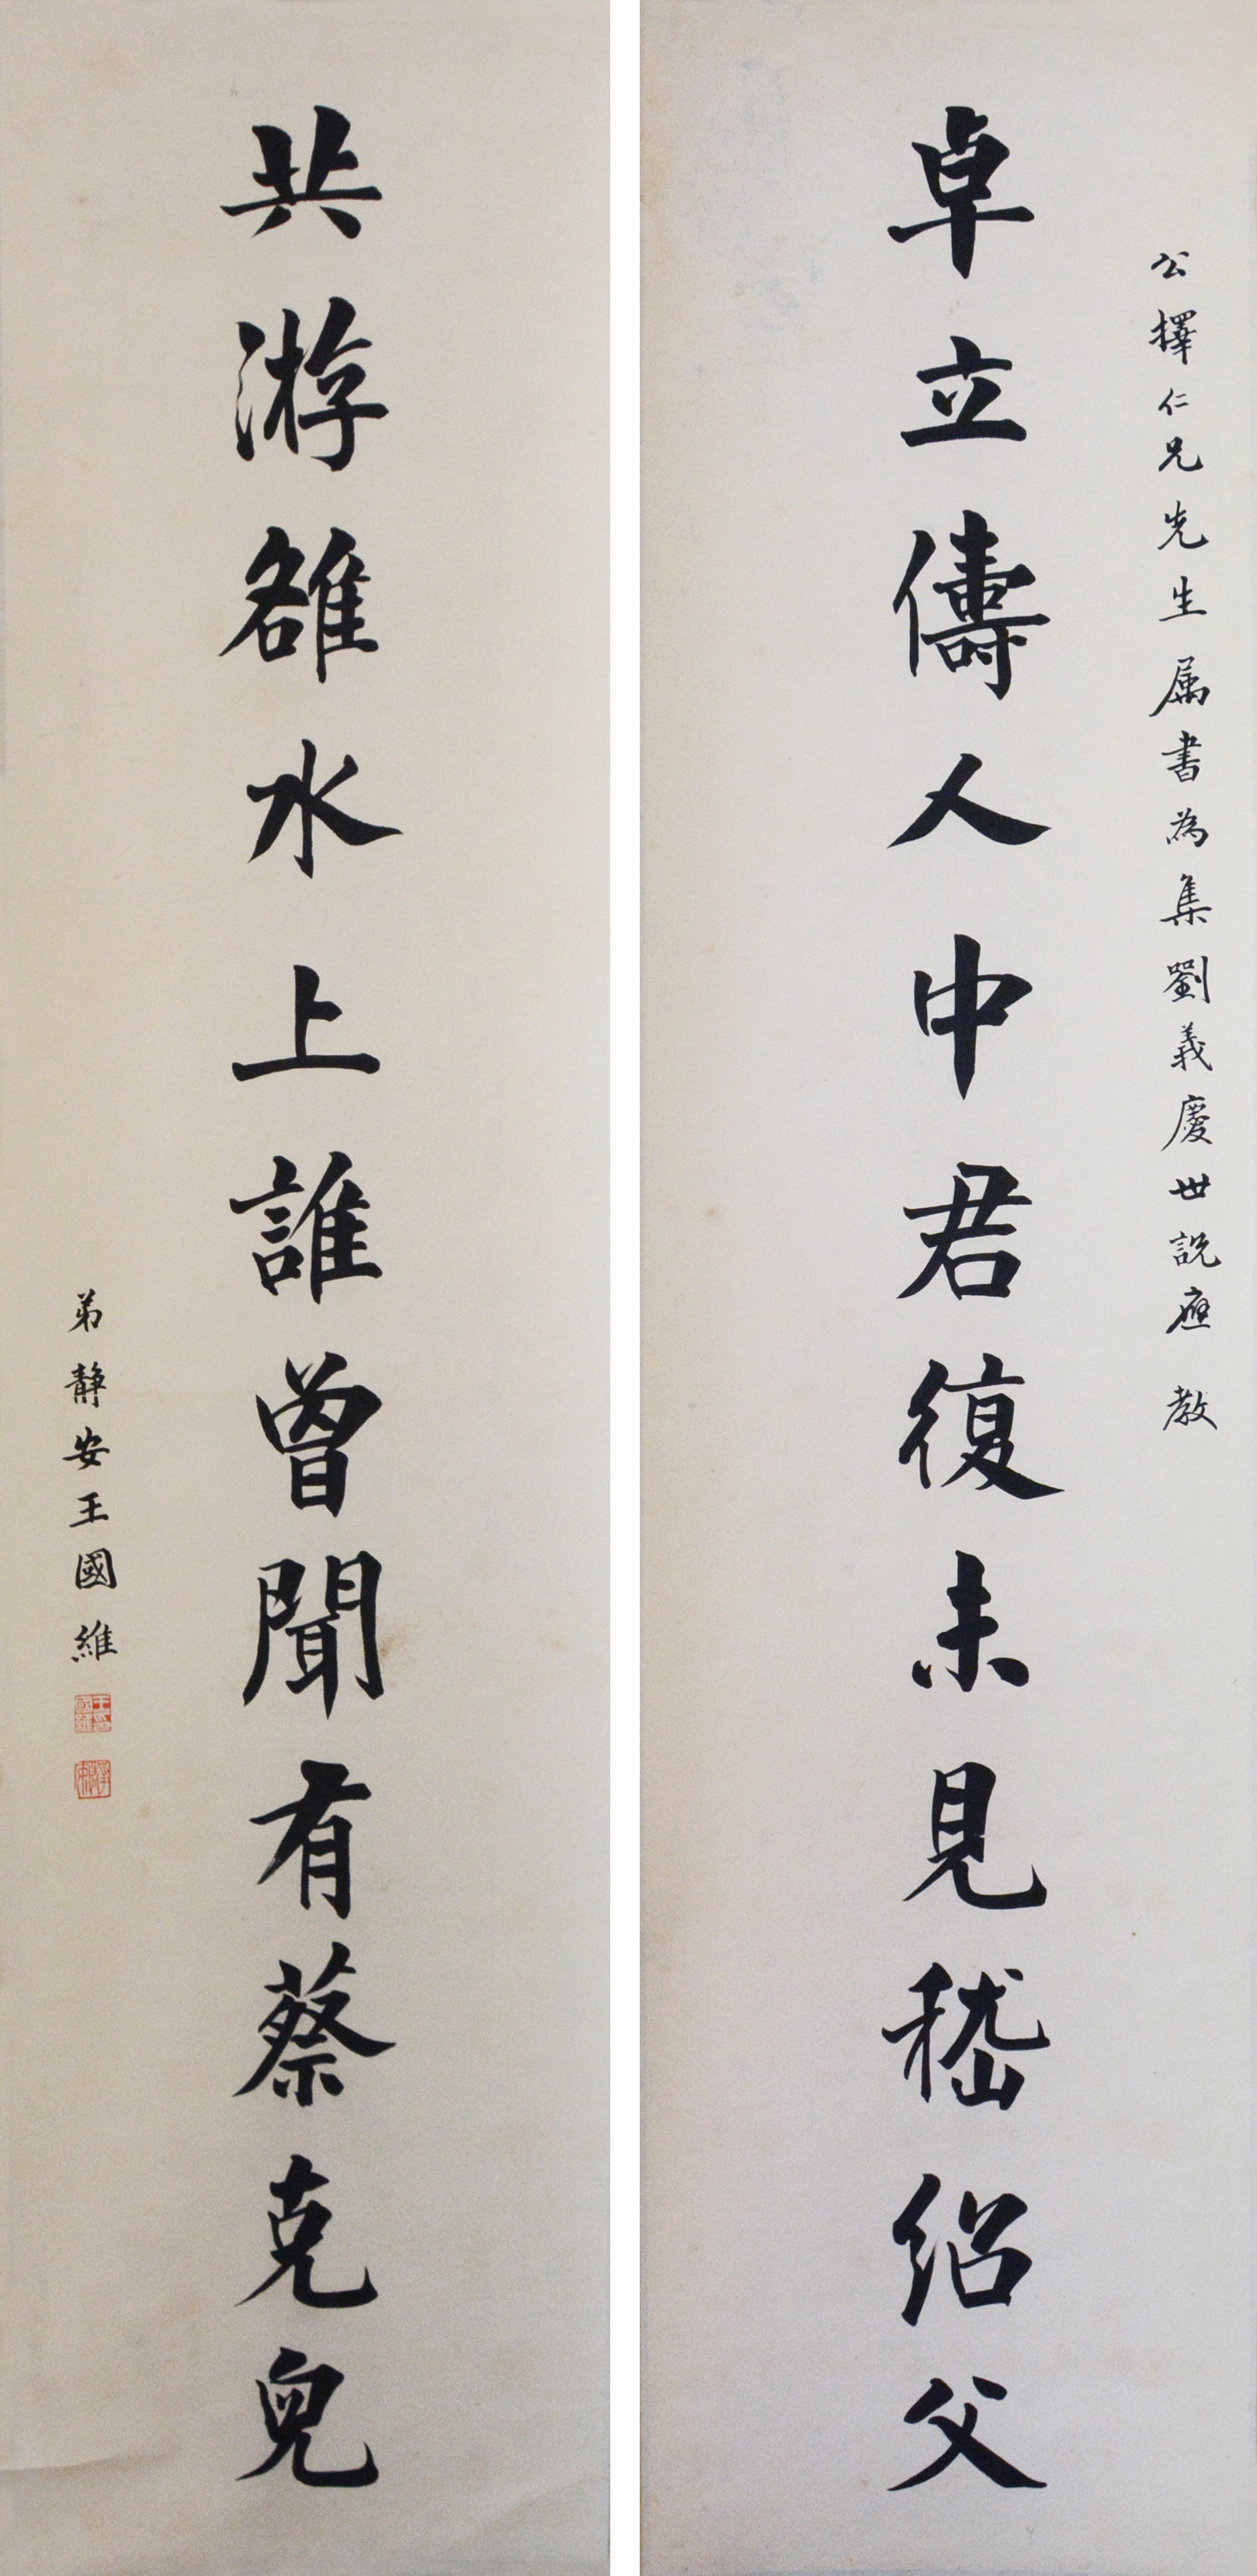 公擇仁兄先生属書為集劉義慶世説應 教
卓立儔人中君復未見嵇紹父
共游雒水上誰曾聞有蔡克兒
弟静安王國維
王印國維
静安